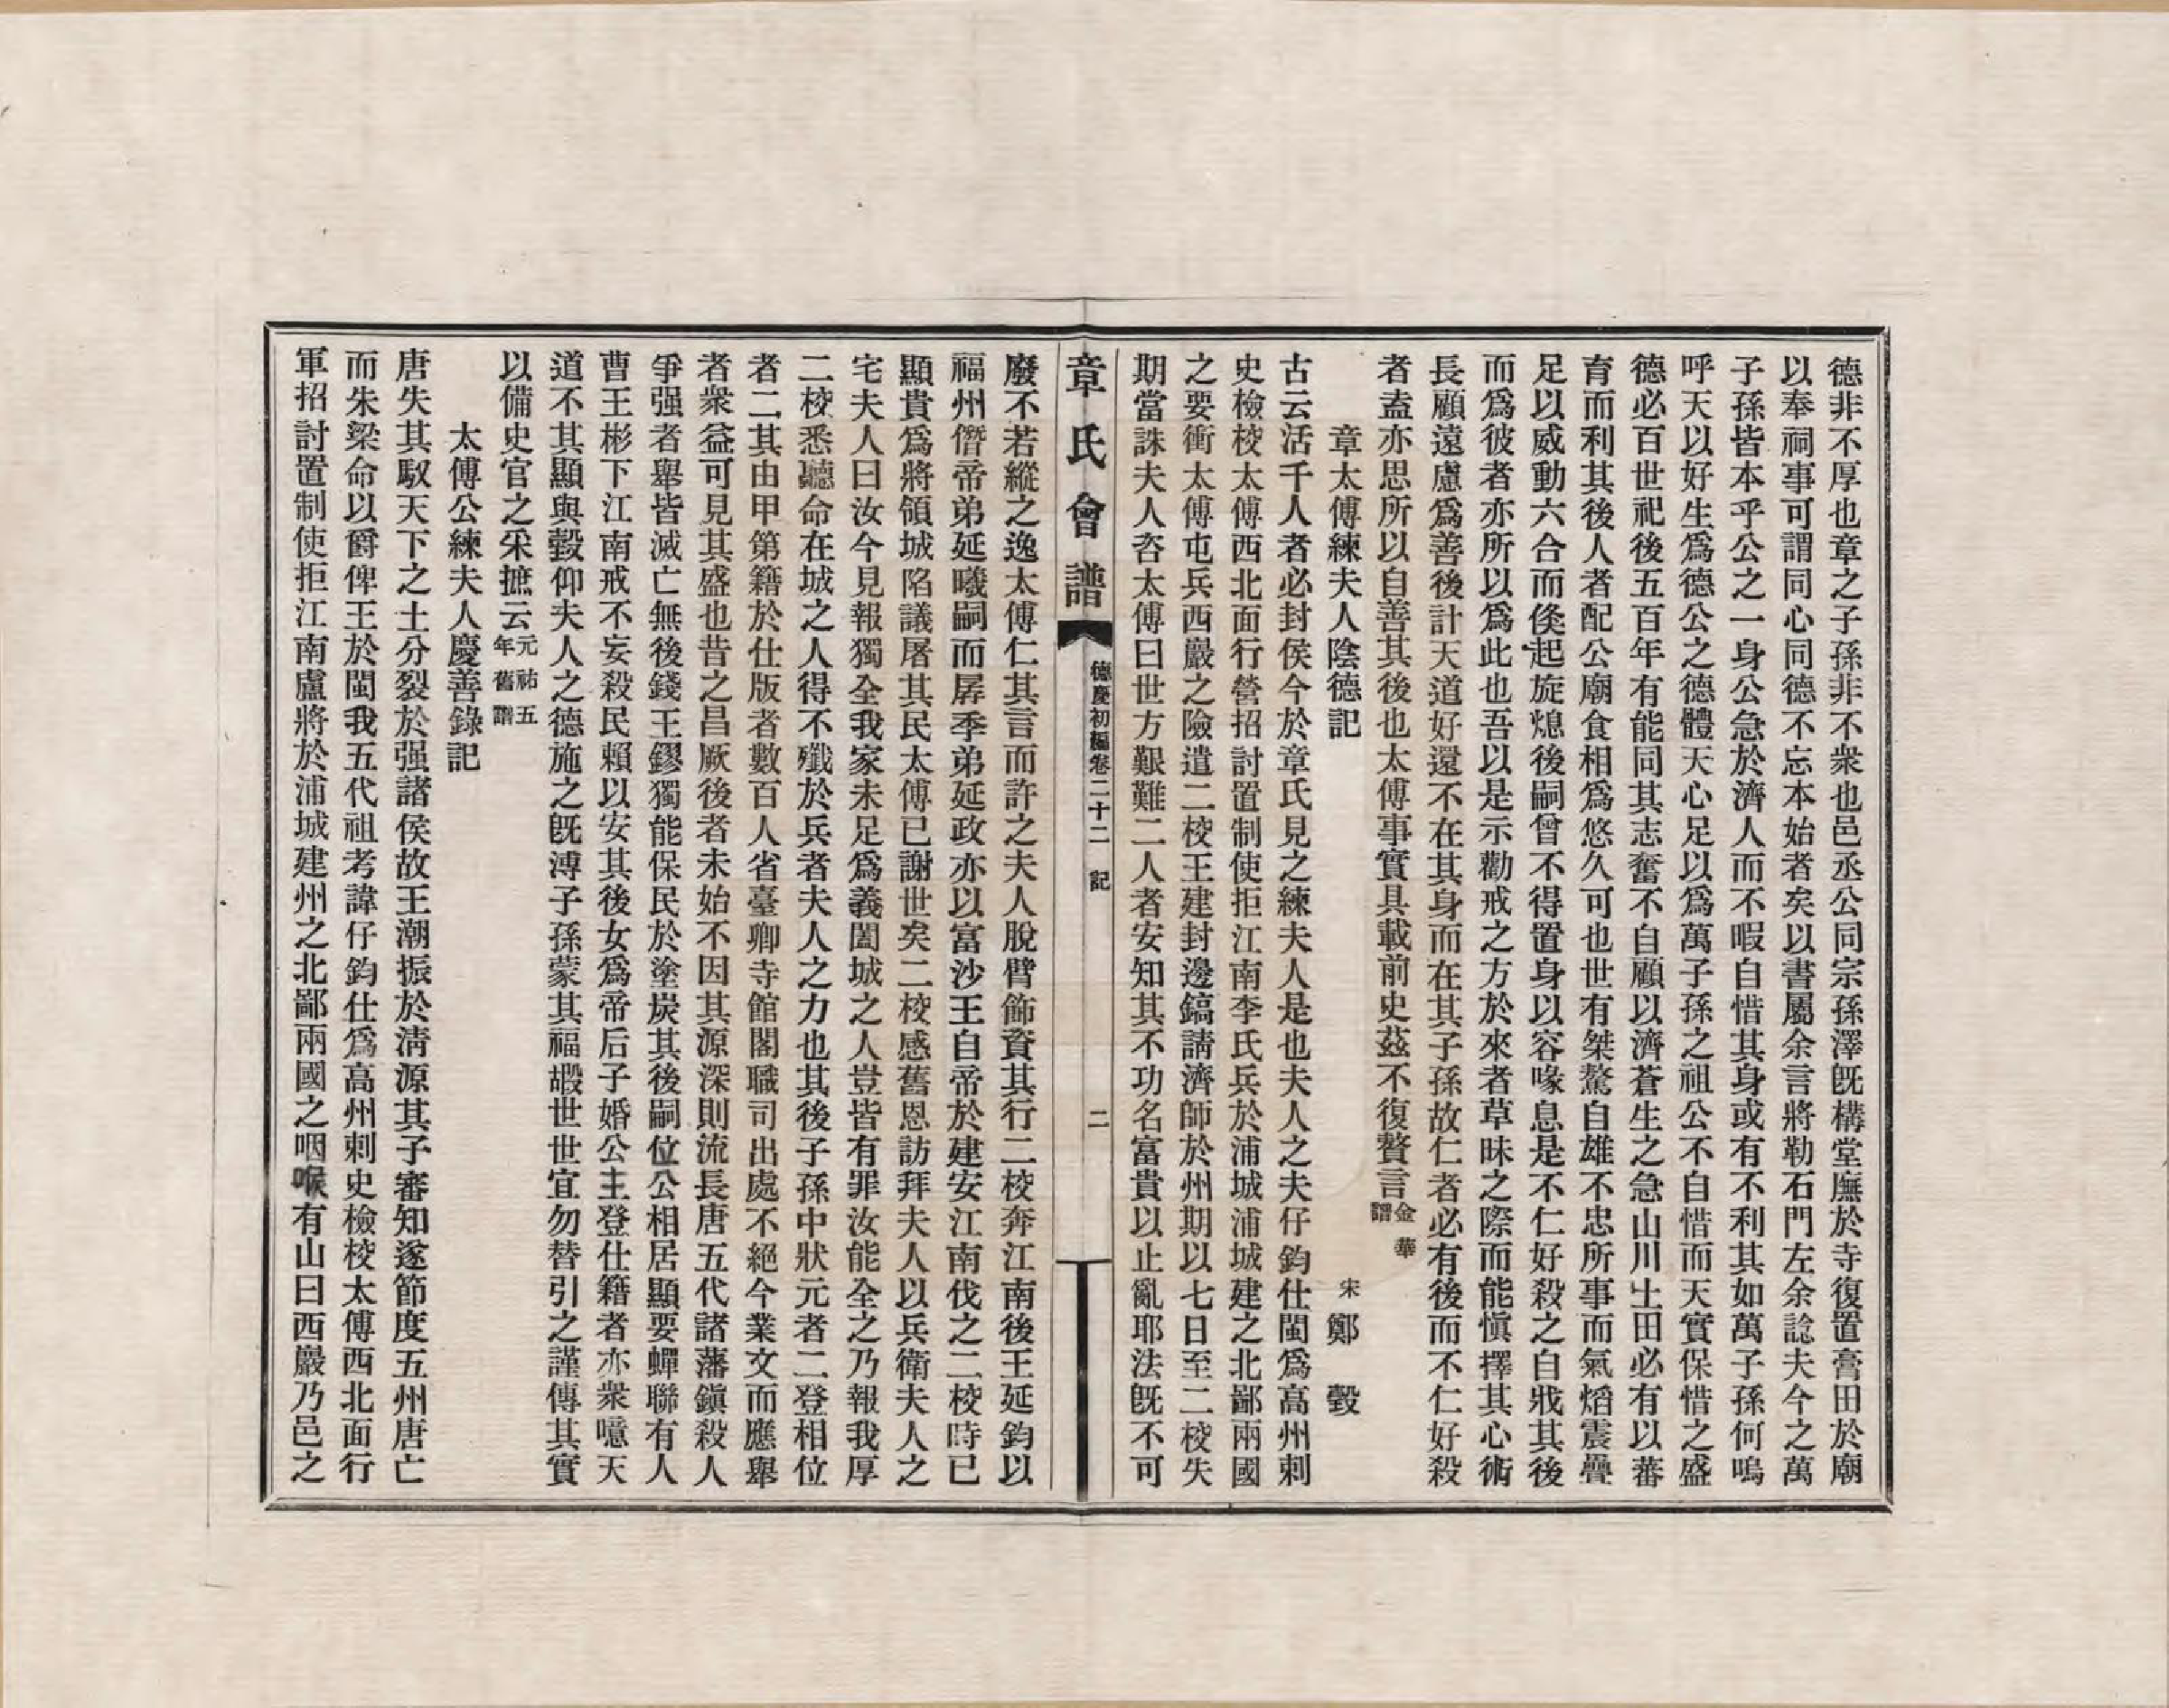 德非不厚也章之子孫非不衆也邑丞公同宗孫澤旣構堂廡於寺復置膏田於廟
以奉祠事可謂同心同德不忘本始者矣以書屬余言將勒石門左余諗夫今之萬
子孫皆本乎公之一身公急於濟人而不暇自惜其身或有不利其如萬子孫何嗚
呼天以好生爲德公之德體天心足以爲萬子孫之祖公不自惜而天實保惜之盛
德必百世祀後五百年有能同其志奮不自顧以濟蒼生之急山川土田必有以蕃
育而利其後人者配公廟食相爲悠久可也世有桀驁自雄不忠所事而氣熖震疊
足以威動六合而倐起旋熄後嗣曾不得置身以容喙息是不仁好殺之自戕其後
而爲彼者亦所以爲此也吾以是示勸戒之方於來者草昧之際而能愼擇其心術
長顧遠慮爲善後計天道好還不在其身而在其子孫故仁者必有後而不仁好殺
者盍亦思所以自善其後也太傅事實具載前史茲不復贅言金華譜
章太傅練夫人陰德記 宋 鄭 瑴
古云活千人者必封侯今於章氏見之練夫人是也夫人之夫仔鈞仕閩爲高州刺
史檢校太傅西北面行營招討置制使拒江南李氏兵於浦城浦城建之北鄙兩國
之要衝太傅屯兵西巖之險遣二校王建封邊鎬請濟師於州期以七日至二校失
期當誅夫人咨太傅曰世方艱難二人者安知其不功名富貴以止亂耶法旣不可
章氏會譜 德慶初編卷二十二 記 二
廢不若縱之逸太傅仁其言而許之夫人脫臂飾資其行二校奔江南後王延鈞以
福州僭帝弟延曦嗣而孱季弟延政亦以富沙王自帝於建安江南伐之二校時已
顯貴爲將領城陷議屠其民太傅已謝世矣二校感舊恩訪拜夫人以兵衛夫人之
宅夫人曰汝今見報獨全我家未足爲義闔城之人豈皆有罪汝能全之乃報我厚
二校悉聽命在城之人得不殲於兵者夫人之力也其後子孫中狀元者二登相位
者二其由甲第籍於仕版者數百人省臺卿寺館閣職司出處不絕今業文而應舉
者衆益可見其盛也昔之昌厥後者未始不因其源深則流長唐五代諸藩鎭殺人
爭强者舉皆滅亡無後錢王鏐獨能保民於塗炭其後嗣位公相居顯要蟬聯有人
曹王彬下江南戒不妄殺民賴以安其後女爲帝后子婚公主登仕籍者亦衆噫天
道不其顯與瑴仰夫人之德施之旣溥子孫蒙其福嘏世世宜勿替引之謹傳其實
以備史官之采摭云元祐五年舊譜
太傅公練夫人慶善錄記
唐失其馭天下之土分裂於强諸侯故王潮振於淸源其子審知遂節度五州唐亡
而朱梁命以爵俾王於閩我五代祖考諱仔鈞仕爲高州刺史檢校太傅西北面行
軍招討置制使拒江南盧將於浦城建州之北鄙兩國之咽喉有山曰西巖乃邑之